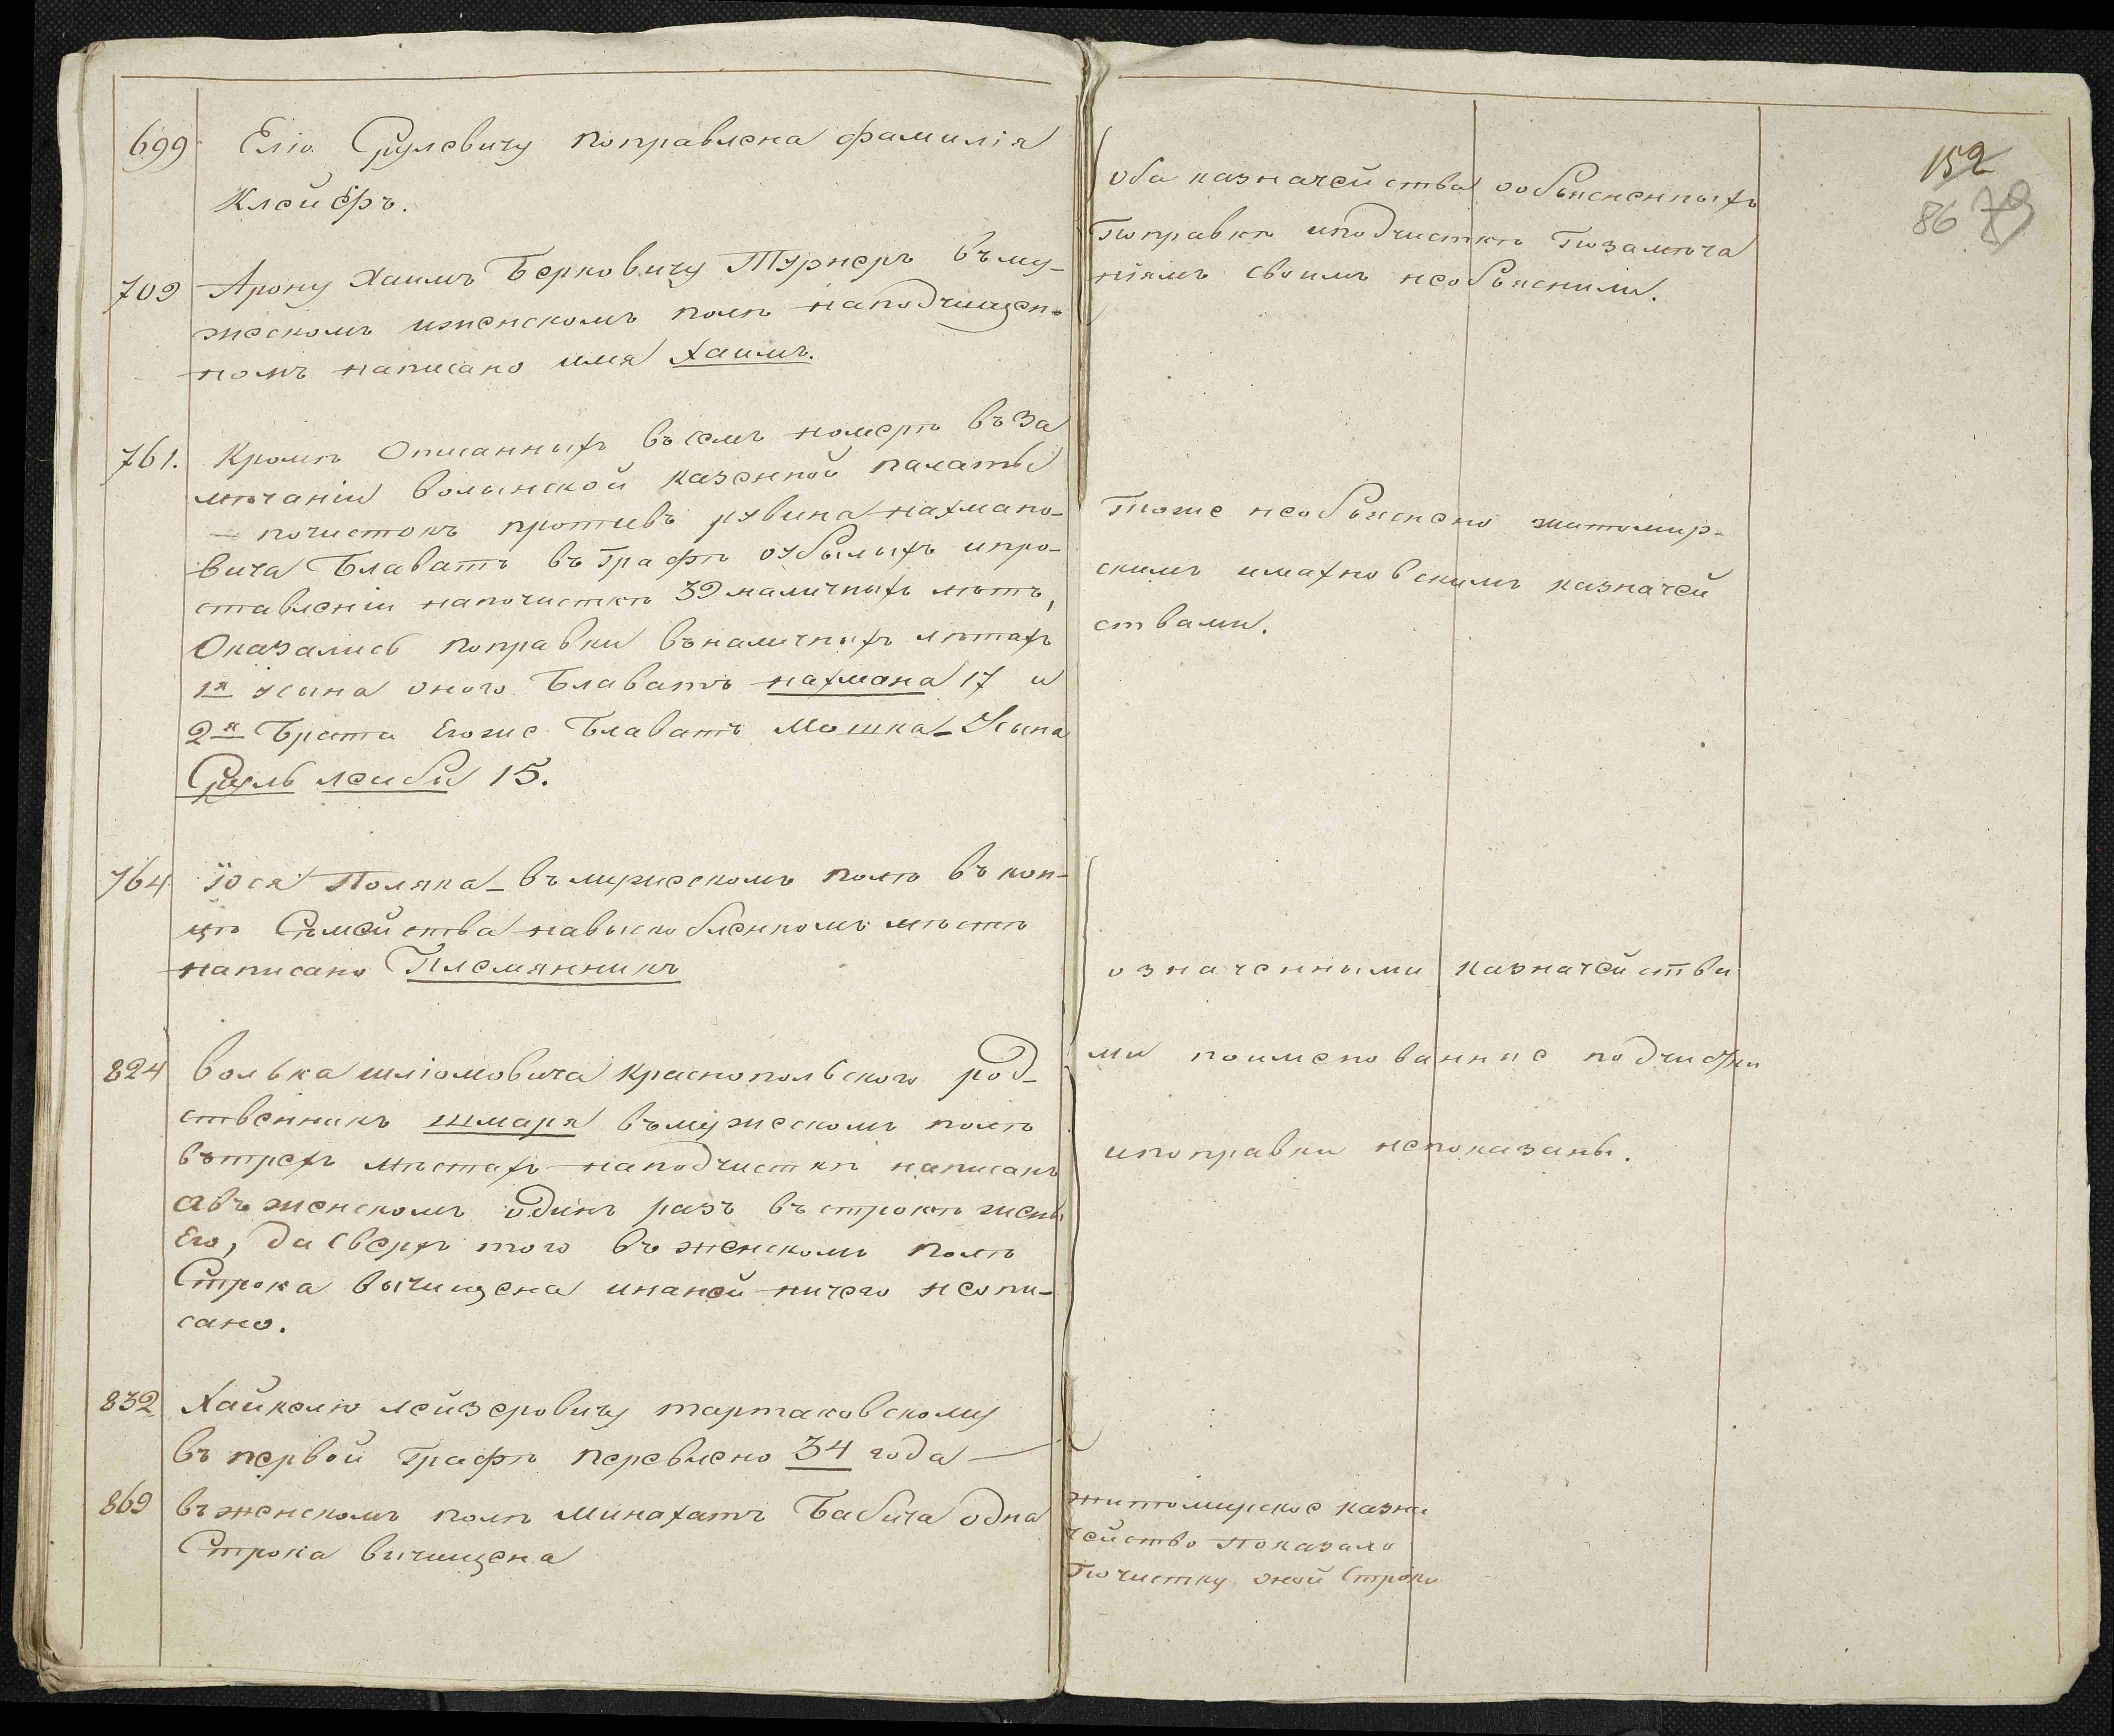 699 Еліо Срулевичу поправлена фамилія
Клейфъ.
709 Арону Хаимъ Берковичу Турнеръ въ му-
жескомъ иженскомъ полѣ наподчищен-
номъ написано имя Хаимъ.
761. Кромѣ Описанныхъ въ семъ номерѣ въ За
мѣчаніи волынской казенной палаты
почистокъ противъ рувина нахмано-
вича Блаватъ въ Графѣ оубылыхъ ипро-
ставленіи напочисткѣ 39 наличныхъ лѣтъ,
Оказались поправки въ наличныхъ лѣтахъ
1я усына оного Блаватъ нахмана 17 и
2я Брата Егоже Блаватъ Мошка - Усына
Сруль лейби 15.
764 Іося Поляка - въ мужескомъ полѣ въ кон-
цѣ Сѣмейства навыскобленномъ мѣстѣ
написано Племянникъ
824 волька шліомовича Краснопольского род-
ственникъ шмаря въ мужескомъ полѣ
вътрехъ мѣстахъ наподчисткѣ написанъ
авъ женскомъ одинъ разъ въ строкѣ жены
Его, да Сверхъ того въ женскомъ полѣ
Строка вычищена инаней ничего непи-
сано.
832 Хайкелю лейзеровичу тартаковскому
въ первой Графѣ перевлено 34 года
869 въ женскомъ полѣ Минахатъ Бабича одна
Строка вычищена
152
86 79
оба казначейства ообъясненныхъ
Поправкѣ иподчисткѣ Позамѣча
ніямъ своимъ необъяснили.
Тоже необъяснено житомир-
скимъ имахновскимъ казначей
ствами.
означенными казначейства
ми поименованные подчистки
ипоправки непоказаны.
житомирское казна
чейство показало
Почистку оной Строки